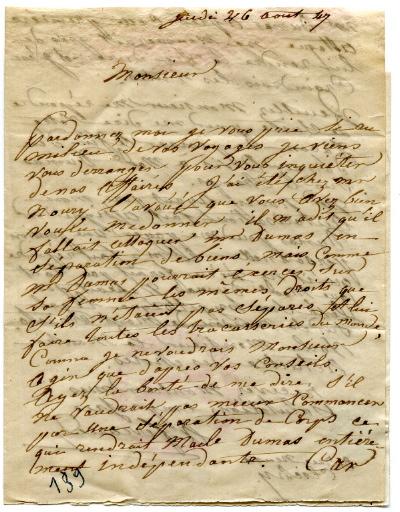 Jeudi 26 aout 47
Monsieur
Pardonnez moi je vous prie si au
milieu de vos voyages je viens
vous deranger pour vous inquieter
de nos affaires. J'ai été chez me
noury l'avoué que vous avez bien
voulu me donner il m'a dit qu'il
fallait attaquer mr Dumas en
séparation de biens mais comme
mr Dumas pourrait exercer sur
sa femme les mêmes droits que
s'ils n'étaient pas séparés et lui
faire toutes les tracasseries du monde
Comme je ne voudrais Monsieur
agir que d'après vos conseils.
Ayez la bonté de me dire s'il
ne vaudrait pas mieux Commencer
par une séparation de Corps ce
qui rendrait Made Dumas entière
ment indépendante. Car
139